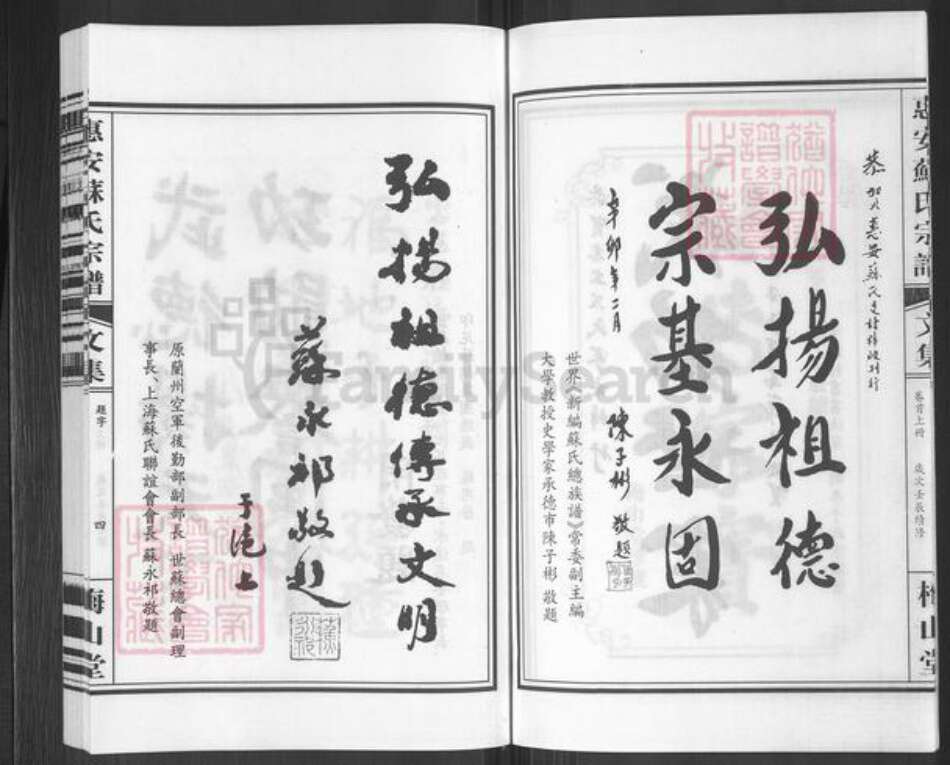 惠安蘇氏宗譜
文集
卷首上冊
歲次壬辰續修
梅山堂
恭賀惠安蘇氏
弘揚祖德
宗基永固
辛卯年二月
陳子彬 敬題
世界《新編蘇氏總族譜》常委副主編
大學教授史學家承德市陳子彬 敬題
弘揚祖德傳承文明
蘇永祁敬題
于滬上
原蘭州空軍後勤部副部長 世蘇總會副理
事長、上海蘇氏聯誼會會長 蘇永祁敬題
惠安蘇氏宗譜
文集
題字
四
梅山堂
FamilySearch